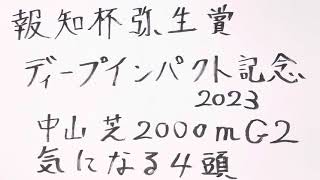 報知杯弥生賞
ディープインパクト記念
2023
中山芝2000mG2
気になる4頭